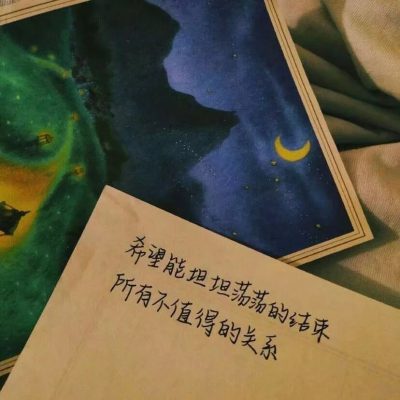 希望能坦坦荡荡的结束
所有不值得的关系